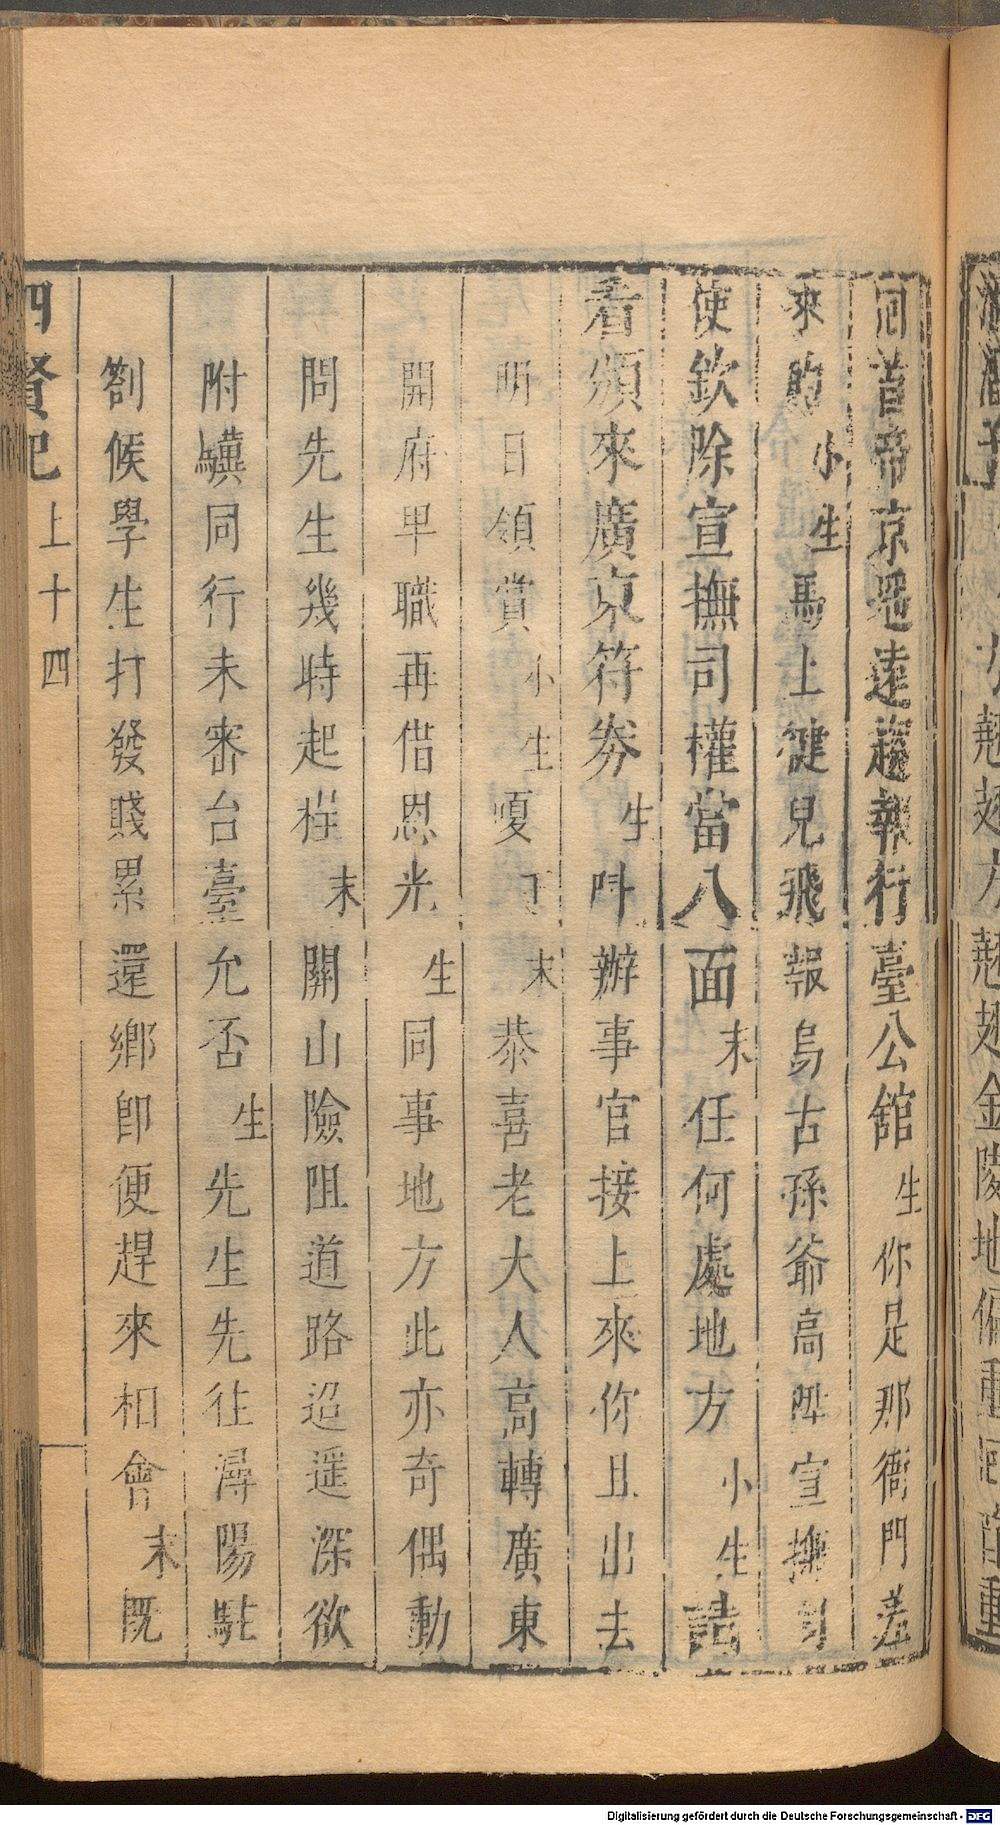 回首帝京咫遠趨報行臺公舘生你是那衙門差
來的小生馬上健兒飛報烏古孫爺高陞宣撫司
使欽除宣撫司權當八面末任何處地方小生請
看頒來廣東符劵生叫辦事官接上來你且出去
明日領賞小生嗄下末恭喜老大人高轉廣東
開府卑職再借恩光生同事地方此亦奇偶動
問先生幾時起程末關山險阻道路迢遥深欲
附驥同行未審台臺允否生先生先徃潯陽駐
劄候學生打發賤累還鄉卽便趕來相會末既
四賢記 上十四
Digitalisierung gefördert durch die Deutsche Forschungsgemeinschaft - DFG